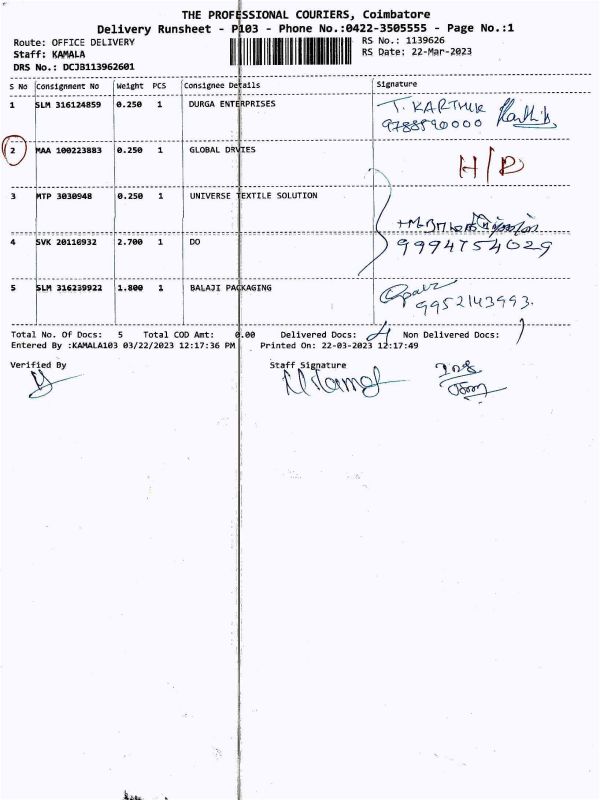 THE PROFESSIONAL COURIERS, Coimbatore
Delivery Runsheet - P103 - Phone No.:0422-3505555 - Page No.:1
Route: OFFICE DELIVERY
RS No.: 1139626
Staff: KAMALA
RS Date: 22-Mar-2023
DRS No.: DCJB113962601
S No Consignment No Weight PCS Consignee Details Signature
1 SLM 316124859 0.250 1 DURGA ENTERPRISES T. KARTHIK
2 MAA 100223883 0.250 1 GLOBAL DRVIES H/D
3 MTP 3030948 0.250 1 UNIVERSE TEXTILE SOLUTION
4 SVK 20110932 2.700 1 DO 9994754029
5 SLM 316239922 1.800 1 BALAJI PACKAGING
9952143993.
Total No. Of Docs: 5 Total COD Amt: 0.00 Delivered Docs: 4 Non Delivered Docs: 1
Entered By :KAMALA103 03/22/2023 12:17:36 PM Printed On: 22-03-2023 12:17:49
Verified By Staff Signature